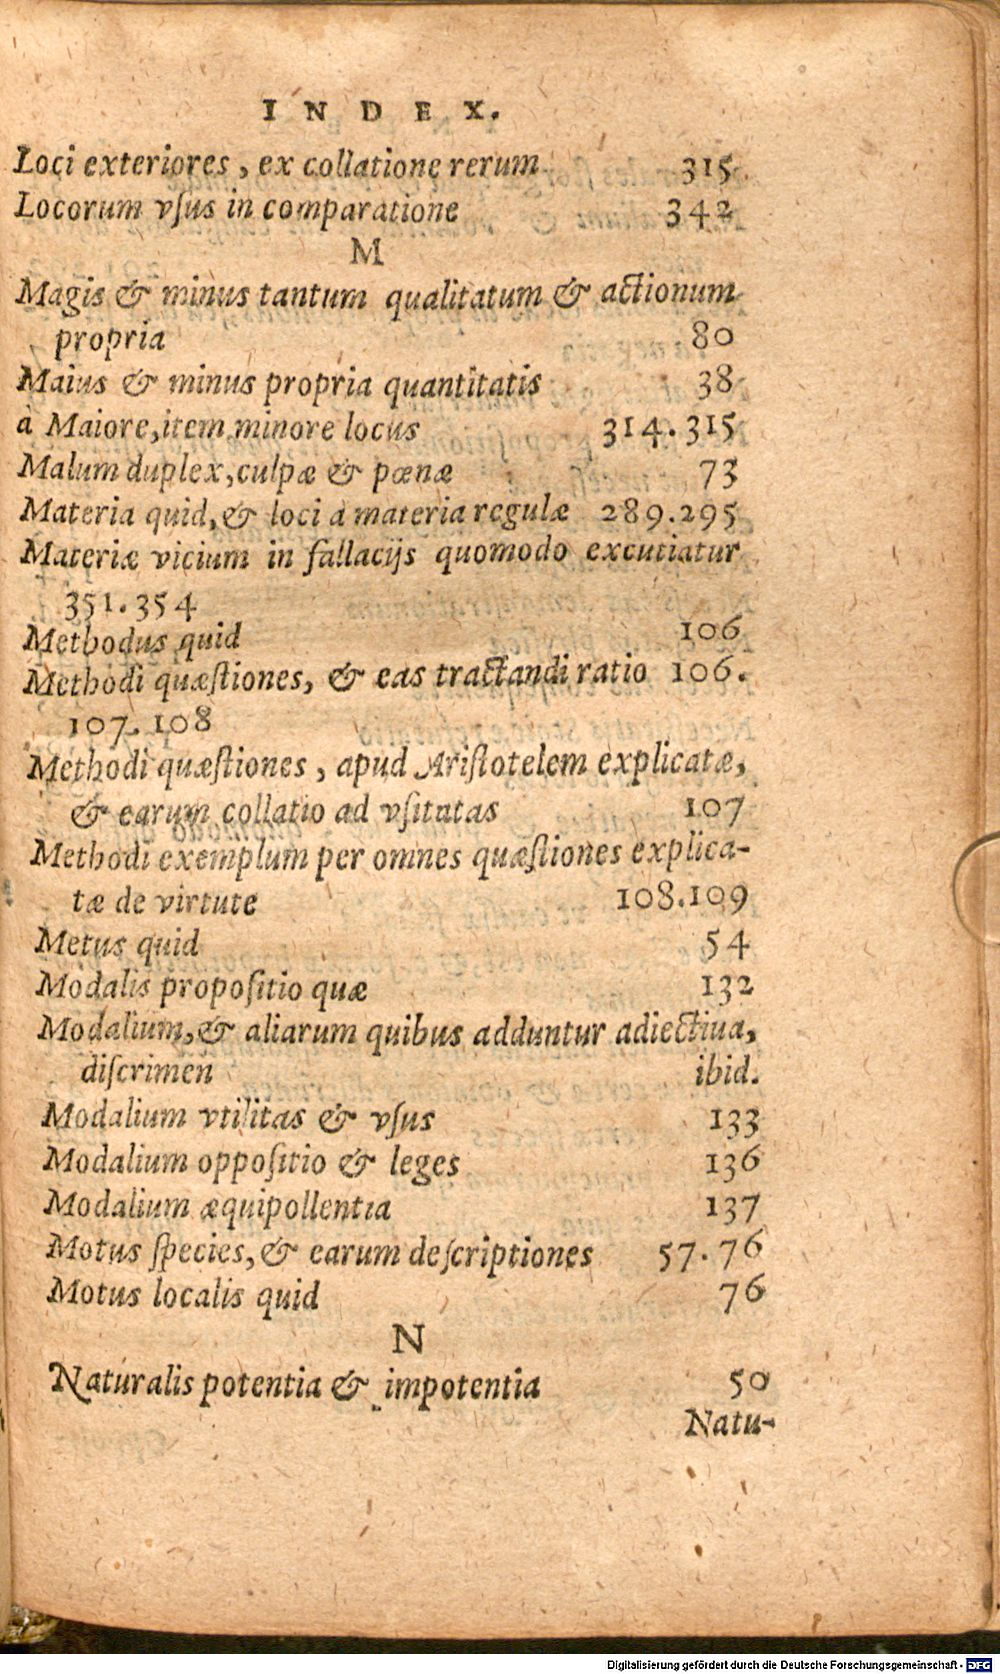 INDEX.
Loci exteriores, ex collatione rerum 315
Locorum vſus in comparatione 342
M
Magis & minus tantum qualitatum & actionum
propria 80
Maius & minus propria quantitatis 38
à Maiore, item minore locus 314.315
Malum duplex, culpæ & pœnæ 73
Materia quid, & loci à materia regulæ 289.295
Materiæ vicium in fallacijs quomodo excutiatur
351.354
Methodus quid 106
Methodi quæſtiones, & eas tractandi ratio 106.
107.108
Methodi quæſtiones, apud Ariſtotelem explicatæ,
& earum collatio ad vſitatas 107
Methodi exemplum per omnes quæſtiones explica-
tæ de virtute 108.109
Metus quid 54
Modalis propoſitio quæ 132
Modalium, & aliarum quibus adduntur adiectiua,
diſcrimen ibid.
Modalium vtilitas & vſus 133
Modalium oppoſitio & leges 136
Modalium æquipollentia 137
Motus ſpecies, & earum deſcriptiones 57.76
Motus localis quid 76
N
Naturalis potentia & impotentia 50
Natu-
Digitalisierung gefördert durch die Deutsche Forschungsgemeinschaft - DFG